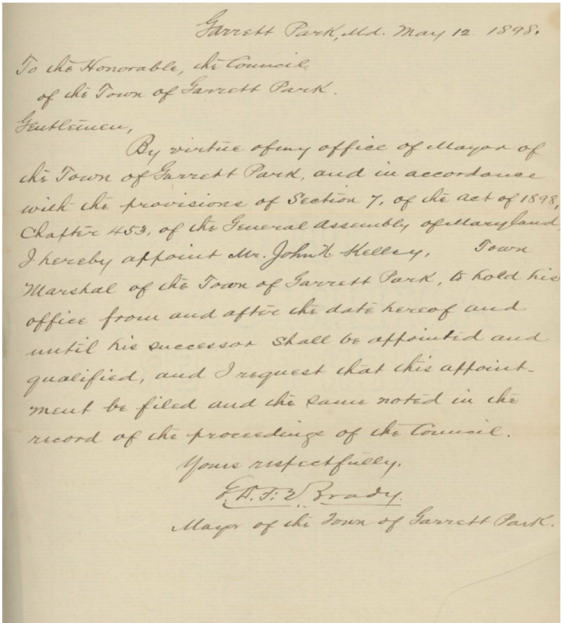 Garrett Park, Md. May 12 1898.
To the Honorable, the Council
of the Town of Garrett Park.
Gentlemen,
By virtue of my office of Mayor of
the Town of Garrett Park, and in accordance
with the provisions of Section 7, of the act of 1898,
Chapter 453, of the General Assembly of Maryland,
I hereby appoint Mr. John Kelley, Town
Marshal of the Town of Garrett Park, to hold his
office from and after the date hereof and
until his successor shall be appointed and
qualified, and I request that this appoint-
ment be filed and the same noted in the
record of the proceedings of the Council.
Yours respectfully,
Brady.
Mayor of the Town of Garrett Park.